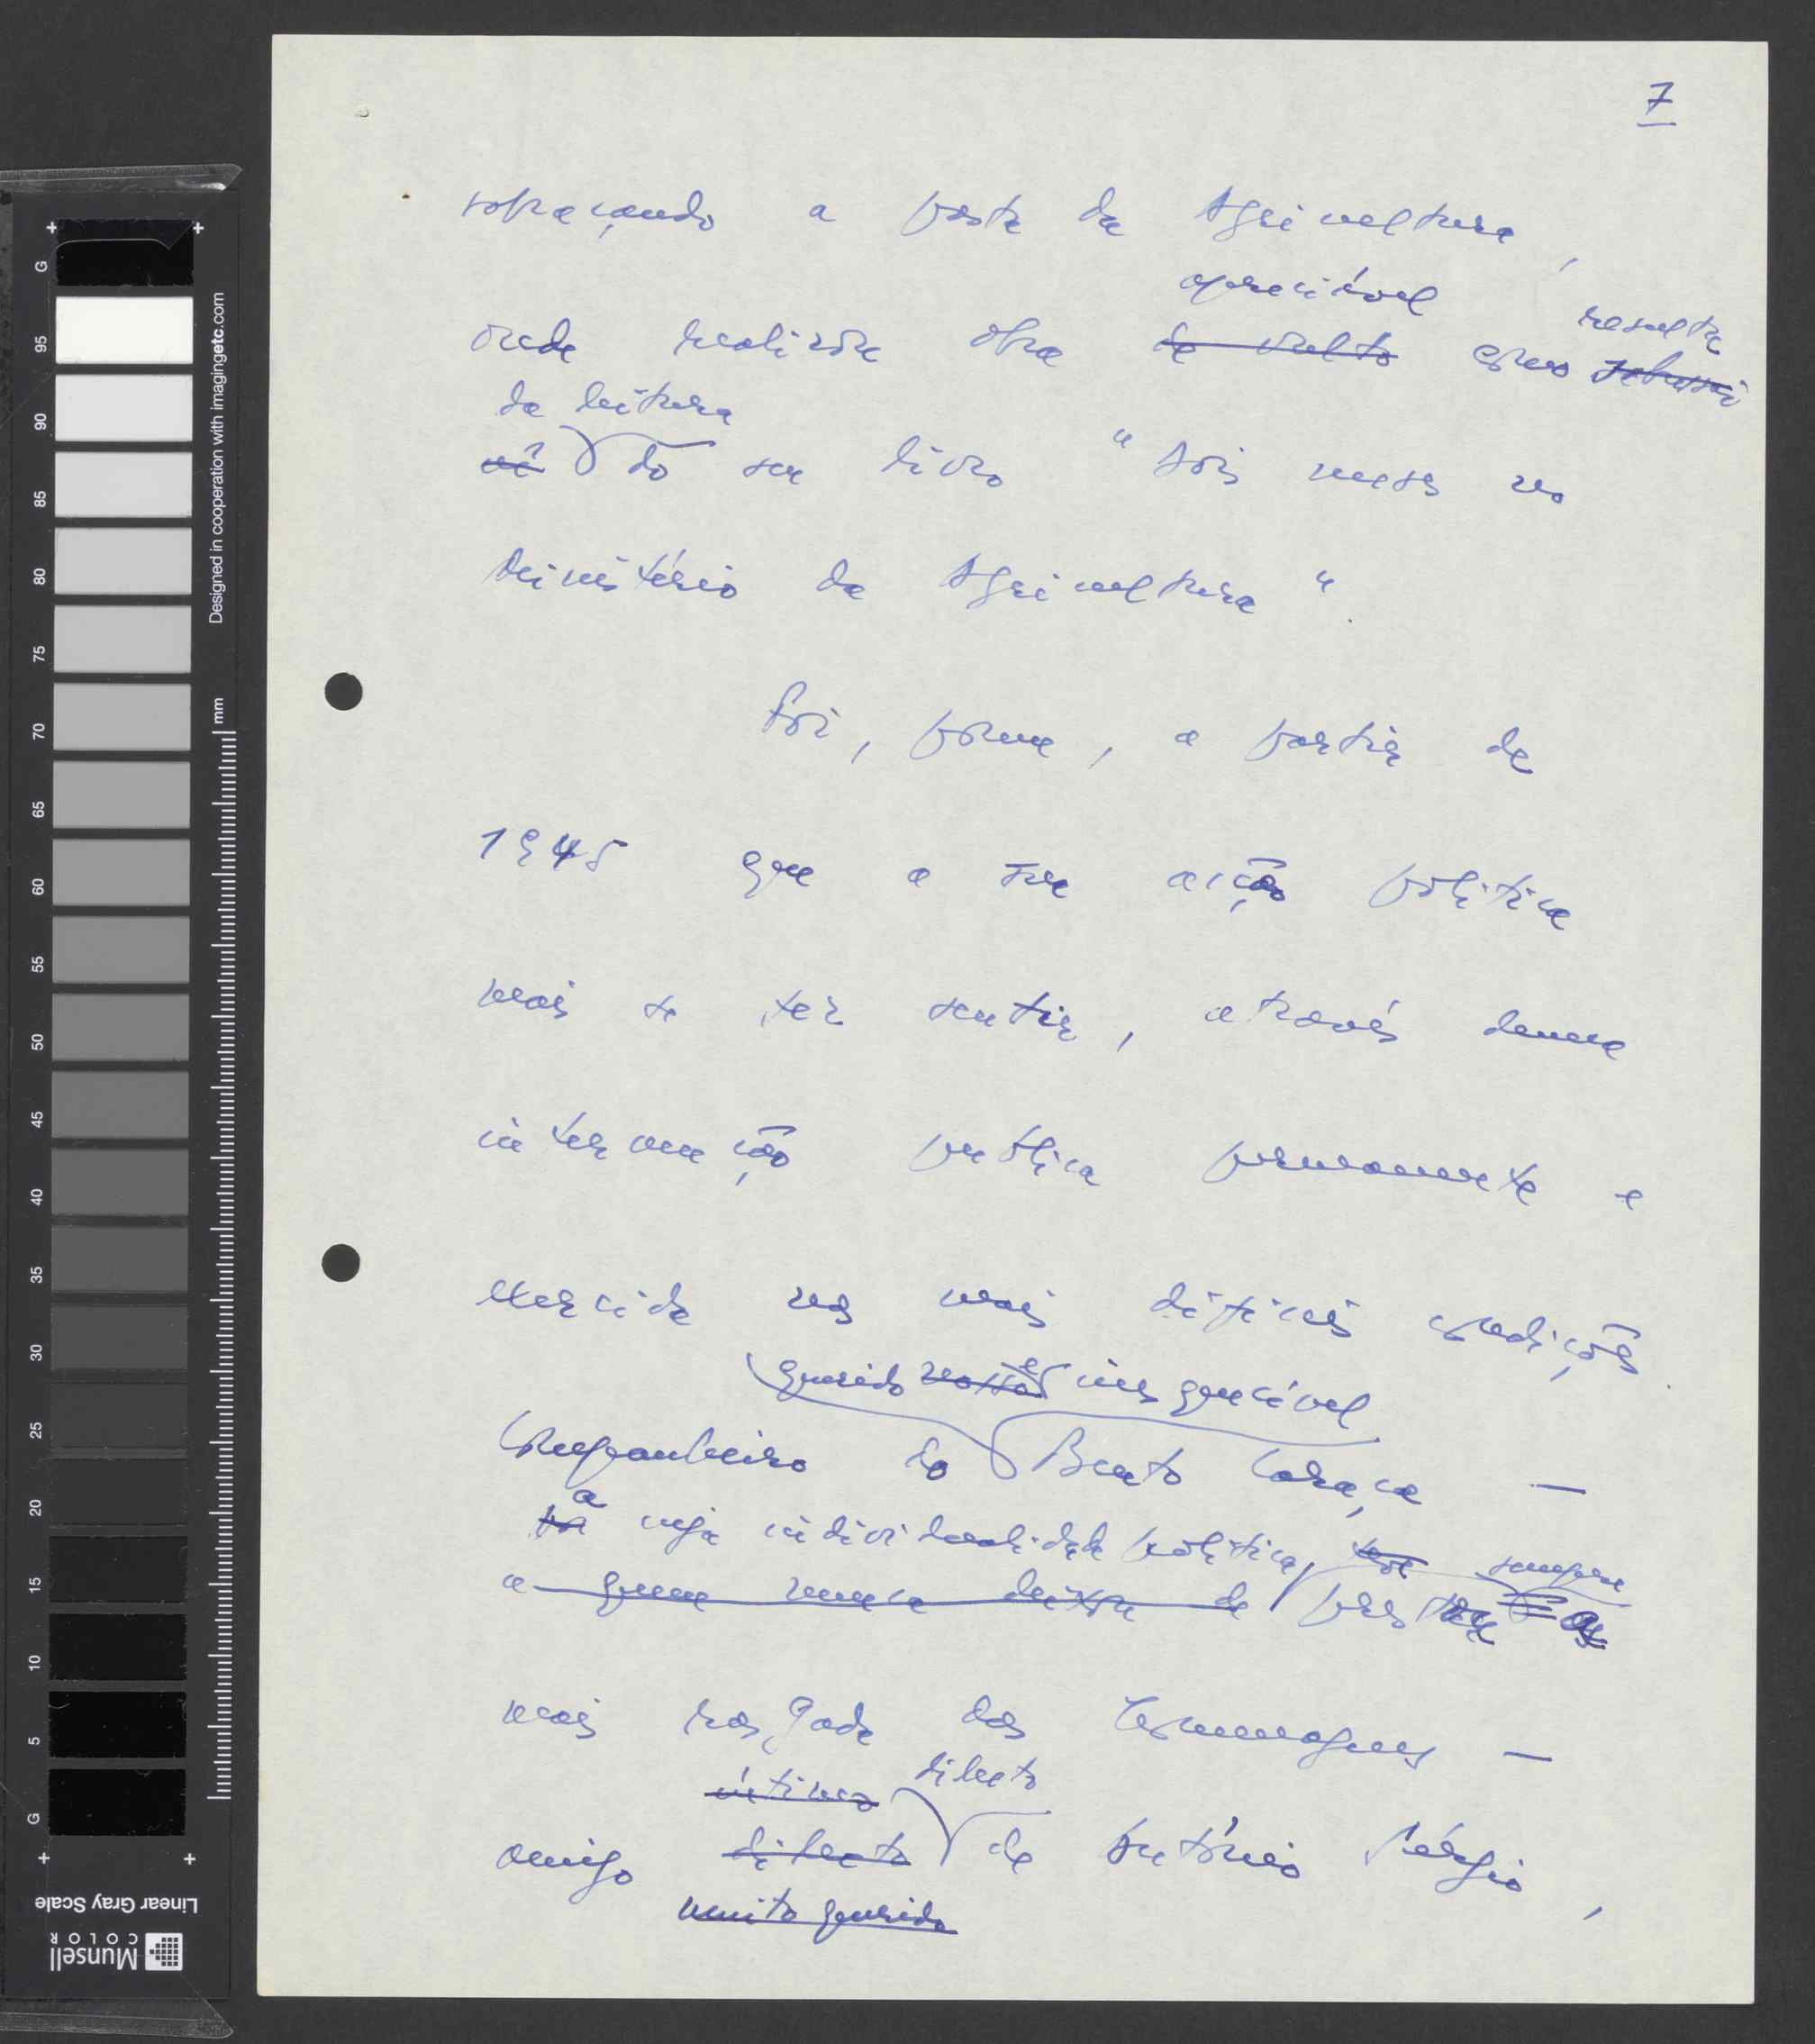 7
sobraçando a pasta da Agricultura,
apreciável
onde realizou obra de vulto como resulta
da leitura
do seu livro "Dois meses no
Ministério da Agricultura".
Foi, porém, a partir de
1945 que a sua acção política
mais se fez sentir, através duma
intervenção pública permanente e
exercida nas mais difíceis condições.
querido e inesquecível
Companheiro do Bento Caraça —
a cuja individualidade política, sempre
a quem nunca deixou de prestar a
mais rasgada das homenagens —
íntimo dilecto
amigo dilecto de António Sérgio,
muito querido
Designed in cooperation with imagingetc.com
mm
G 95 90 85 80 75 70 65 60 55 50 45 40 35 30 25 20 15 10 5 G
Linear Gray Scale
Munsell
COLOR